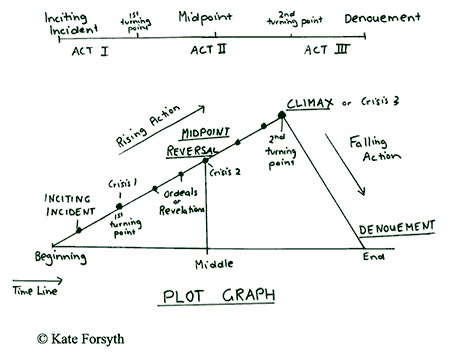 Inciting Incident
1st turning point
Midpoint
2nd turning point
Denouement
ACT I
ACT II
ACT III
Rising Action
CLIMAX or Crisis 3
MIDPOINT REVERSAL
2nd turning point
Falling Action
Crisis 2
Crisis 1
INCITING INCIDENT
1st turning point
Ordeals or Revelations
DENOUEMENT
Beginning
Middle
End
Time Line
PLOT GRAPH
© Kate Forsyth